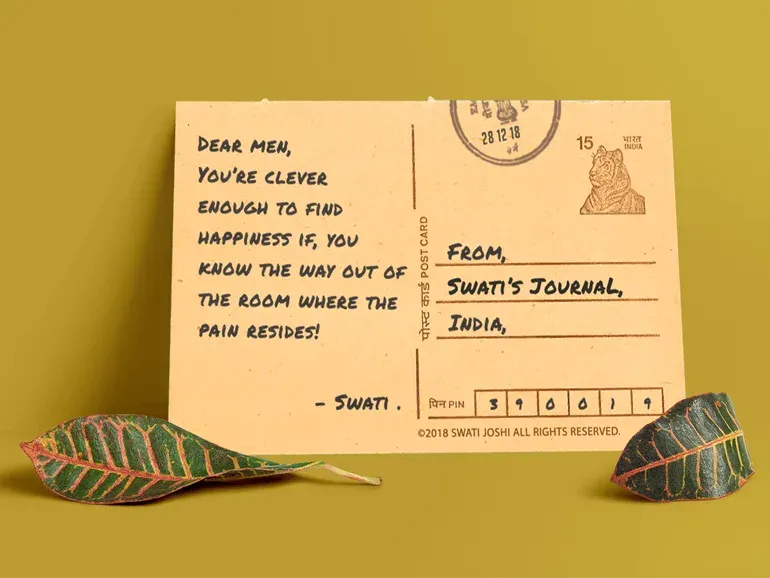 DEAR MEN,
YOU'RE CLEVER
ENOUGH TO FIND
HAPPINESS IF, YOU
KNOW THE WAY OUT OF
THE ROOM WHERE THE
PAIN RESIDES!
- SWATI .
पोस्ट कार्ड POST CARD
28 12 18
15 भारत
INDIA
FROM,
SWATI'S JOURNAL,
INDIA,
पिन PIN 390019
©2018 SWATI JOSHI ALL RIGHTS RESERVED.